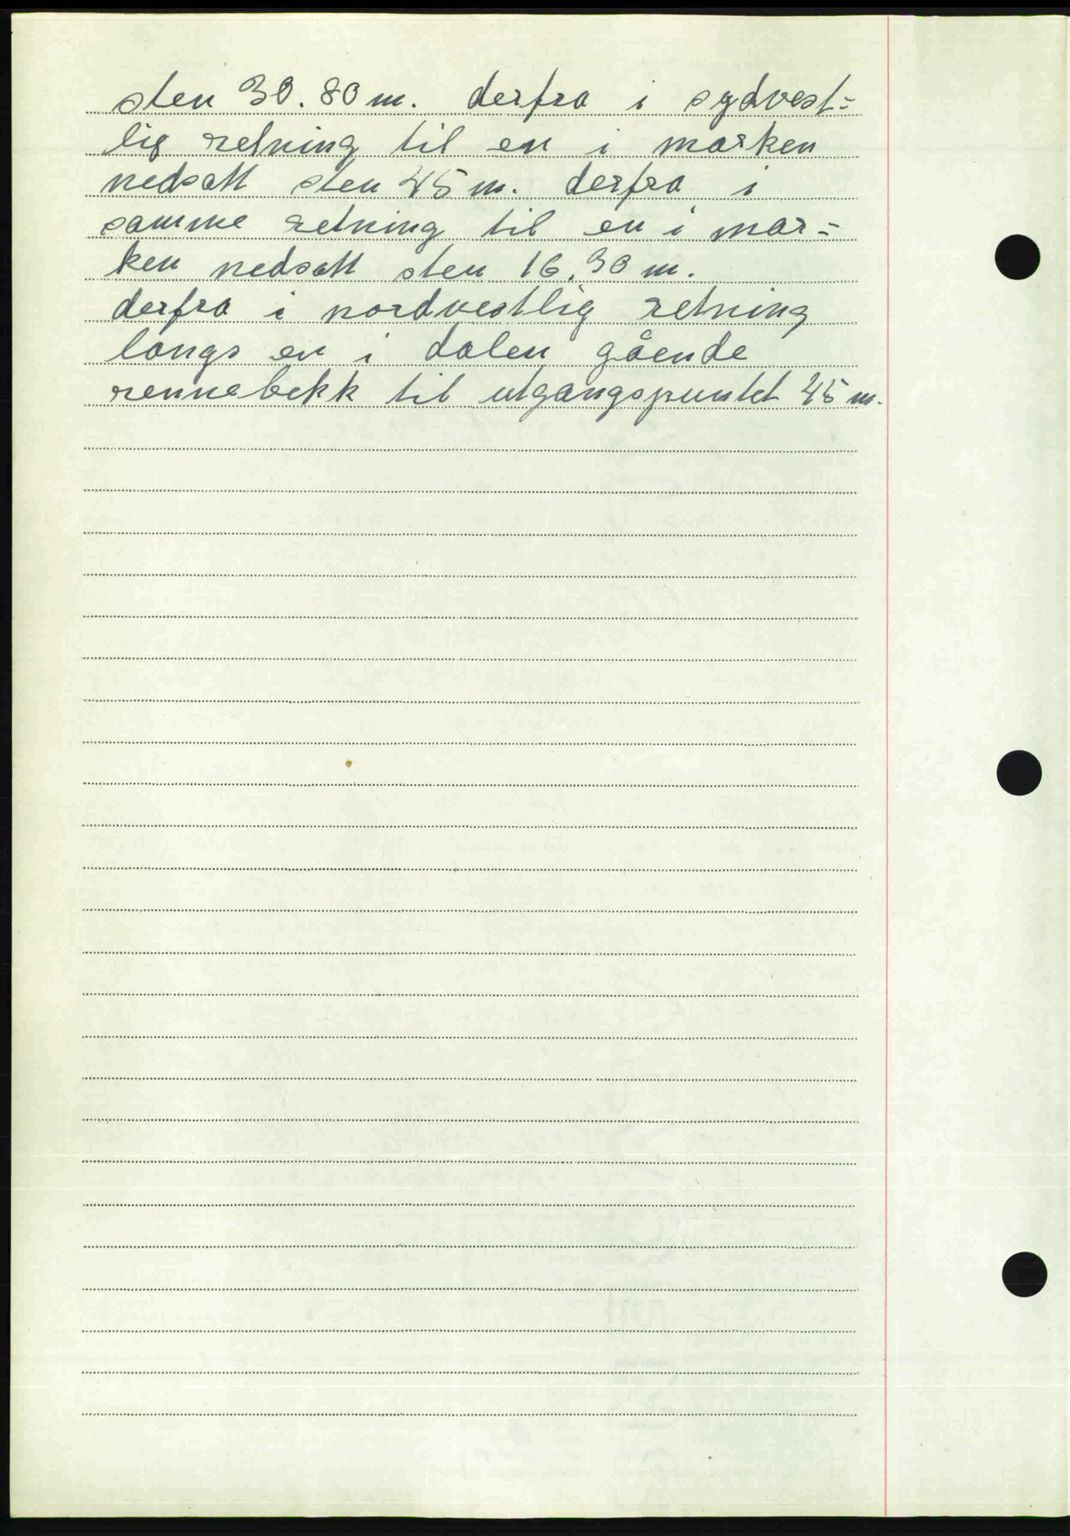 sten 30.80 m. derfra i sydvest=
lig retning til en i marken
nedsatt sten 45 m. derfra i
samme retning til en i mar=
ken nedsatt sten 16.30 m.
derfra i nordvestlig retning
langs en i dalen gående
rennebekk til utgangspuntet 45 m.